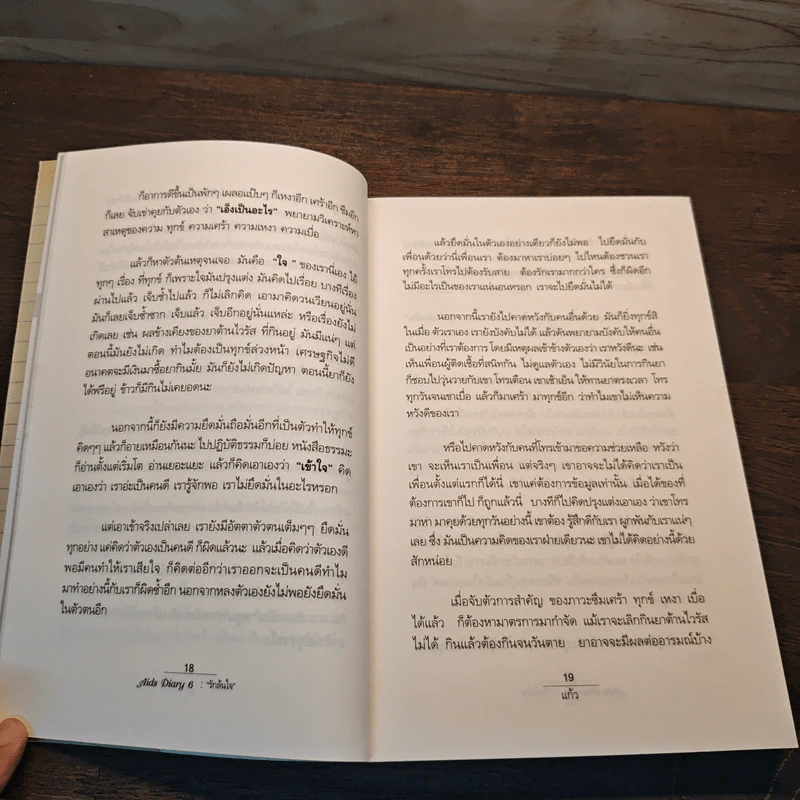 ก็อาการดีขึ้นเป็นพักๆ เผลอแป๊บๆ ก็เหงาอีก เศร้าอีก ซึมอีก
ก็เลย จับเข่าคุยกับตัวเอง ว่า "เอ็งเป็นอะไร" พยายามวิเคราะห์หา
สาเหตุของความ ทุกข์ ความเศร้า ความเหงา ความเบื่อ
แล้วก็หาตัวต้นเหตุจนเจอ มันคือ "ใจ" ของเรานี่เอง ไอ้
ทุกๆ เรื่อง ที่ทุกข์ ก็เพราะใจมันปรุงแต่ง มันคิดไปเรื่อย บางทีเรื่อง
ผ่านไปแล้ว เจ็บซ้ำไปแล้ว ก็ไม่เลิกคิด เอามาคิดวนเวียนอยู่นั่น
มันก็เลยเจ็บซ้ำซาก เจ็บแล้ว เจ็บอีกอยู่นั่นแหล่ะ หรือเรื่องยังไม่
เกิดเลย เช่น ผลข้างเคียงของยาต้านไวรัส ที่กินอยู่ มันมีแน่ๆ แต่
ตอนนี้มันยังไม่เกิด ทำไมต้องเป็นทุกข์ล่วงหน้า เศรษฐกิจไม่ดี
อนาคตจะมีเงินมาซื้อยากินมั้ย มันก็ยังไม่เกิดปัญหา ตอนนี้ยาก็ยัง
ได้ฟรีอยู่ ข้าวก็มีกินไม่เคยอดนะ
นอกจากนี้ก็ยังมีความยึดมั่นถือมั่นอีกที่เป็นตัวทำให้ทุกข์
คิดๆๆ แล้วก็อายเหมือนกันนะ ไปปฏิบัติธรรมก็บ่อย หนังสือธรรมะ
ก็อ่านตั้งแต่เริ่มโต อ่านเยอะแยะ แล้วก็คิดเอาเองว่า "เข้าใจ" คิด
เอาเองว่า เราอ่ะเป็นคนดี เรารู้จักพอ เราไม่ยึดมั่นในอะไรหรอก
แต่เอาเข้าจริงเปล่าเลย เรายังมีอัตตาตัวตนเต็มๆๆ ยึดมั่น
ทุกอย่าง แค่คิดว่าตัวเองเป็นคนดี ก็ผิดแล้วนะ แล้วเมื่อคิดว่าตัวเองดี
พอมีคนทำให้เราเสียใจ ก็คิดต่ออีกว่าเราออกจะเป็นคนดีทำไม
มาทำอย่างนี้กับเราก็ผิดซ้ำอีก นอกจากหลงตัวเองยังไม่พอยังยึดมั่น
ในตัวตนอีก
18
Aids Diary 6 : "รักล้นใจ"
แล้วยึดมั่นในตัวเองอย่างเดียวก็ยังไม่พอ ไปยึดมั่นกับ
เพื่อนด้วยว่านี่เพื่อนเรา ต้องมาหาเราบ่อยๆ ไปไหนต้องชวนเรา
ทุกครั้งเราโทรไปต้องรับสาย ต้องรักเรามากกว่าใคร ซึ่งก็ผิดอีก
ไม่มีอะไรเป็นของเราแน่นอนหรอก เราจะไปยึดมั่นไม่ได้
นอกจากนี้เรายังไปคาดหวังกับคนอื่นด้วย มันก็ยิ่งทุกข์สิ
ในเมื่อ ตัวเราเอง เรายังบังคับไม่ได้ แล้วดันพยายามบังคับให้คนอื่น
เป็นอย่างที่เราต้องการ โดยมีเหตุผลเข้าข้างตัวเองว่า เราหวังดีนะ เช่น
เห็นเพื่อนผู้ติดเชื้อที่สนิทกัน ไม่ดูแลตัวเอง ไม่มีวินัยในการกินยา
ก็ชอบไปวุ่นวายกับเขา โทรเตือน เขาเช้าเย็น ให้ทานยาตรงเวลา โทร
ทุกวันจนเขาเบื่อ แล้วก็มาเศร้า มาทุกข์อีก ว่าทำไมเขาไม่เห็นความ
หวังดีของเรา
หรือไปคาดหวังกับคนที่โทรเข้ามาขอความช่วยเหลือ หวังว่า
เขา จะเห็นเราเป็นเพื่อน แต่จริงๆ เขาอาจจะไม่ได้คิดว่าเราเป็น
เพื่อนตั้งแต่แรกก็ได้นี่ เขาแค่ต้องการข้อมูลเท่านั้น เมื่อได้ของที่
ต้องการเขาก็ไป ก็ถูกแล้วนี่ บางทีก็ไปคิดปรุงแต่งเอาเอง ว่าเขาโทร
มาหา มาคุยด้วยทุกวันอย่างนี้ เขาต้อง รู้สึกดีกับเรา ผูกพันกับเราแน่ๆ
เลย ซึ่ง มันเป็นความคิดของเราฝ่ายเดียวนะ เขาไม่ได้คิดอย่างนี้ด้วย
สักหน่อย
เมื่อจับตัวการสำคัญ ของภาวะซึมเศร้า ทุกข์ เหงา เบื่อ
ได้แล้ว ก็ต้องหามาตรการมากำจัด แม้เราจะเลิกกินยาต้านไวรัส
ไม่ได้ กินแล้วต้องกินจนวันตาย ยาอาจจะมีผลต่ออารมณ์บ้าง
19
แก้ว